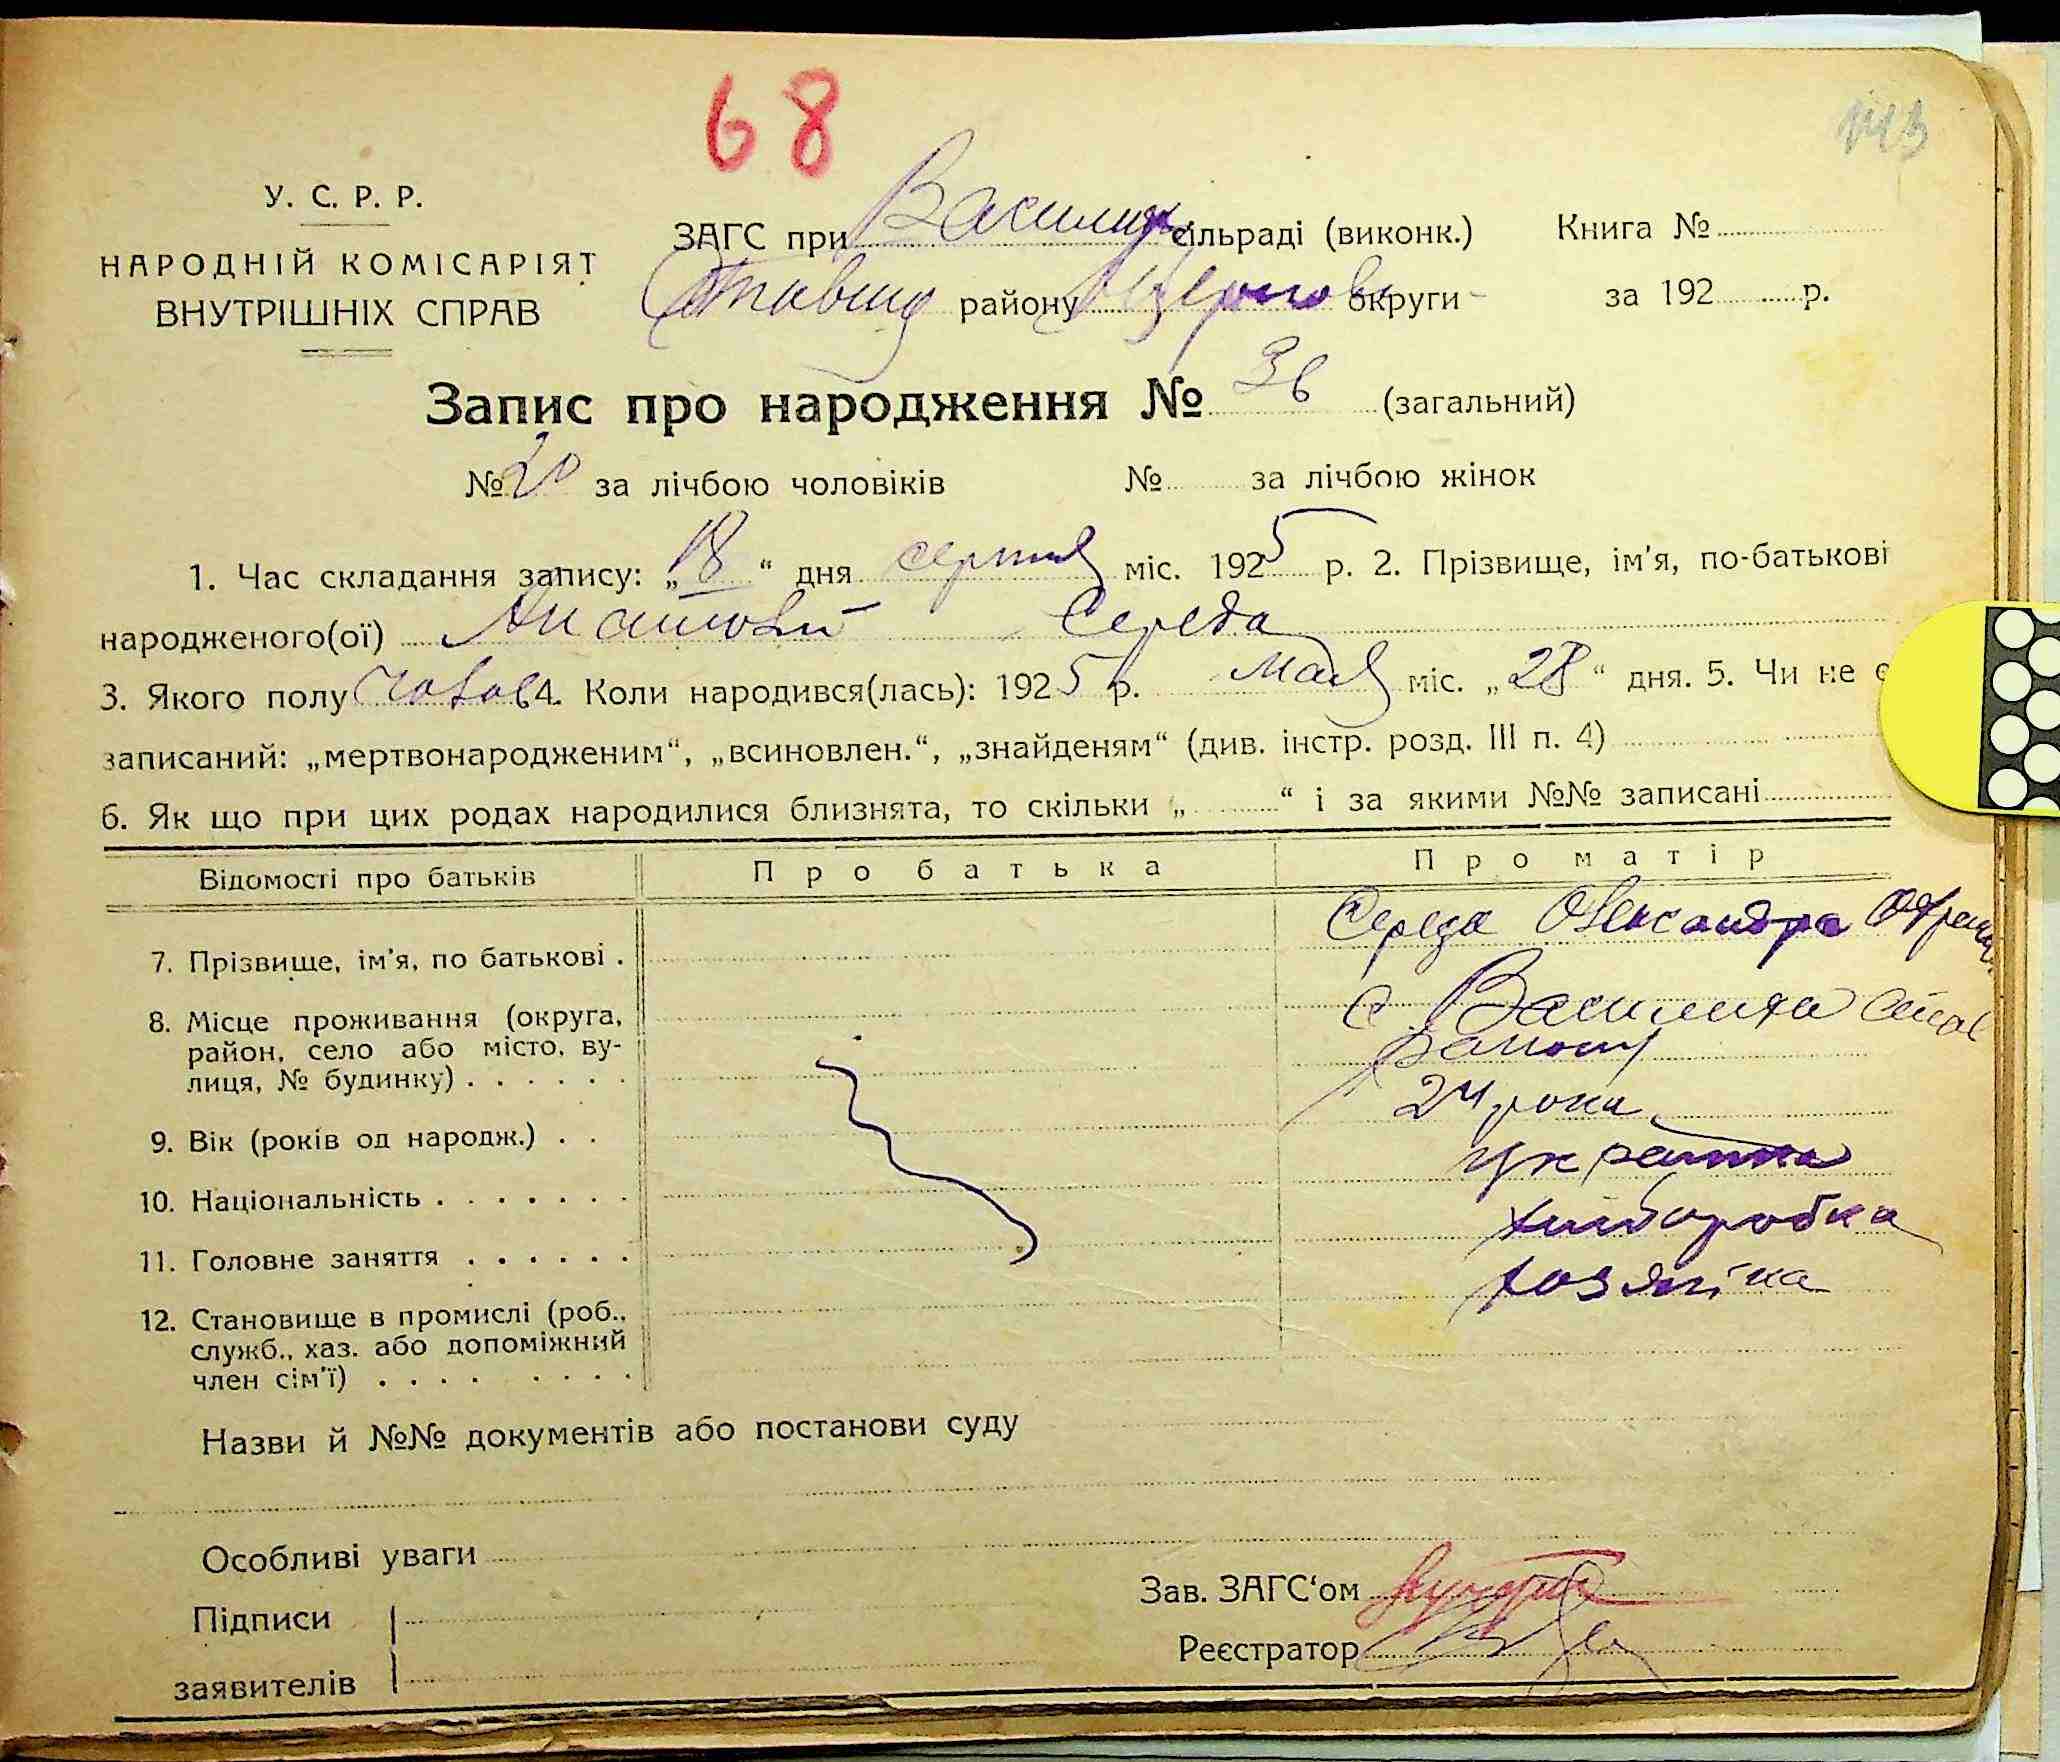 68
143
У. С. Р. Р.
НАРОДНІЙ КОМІСАРІЯТ
ВНУТРІШНІХ СПРАВ
ЗАГС при Василиць сільраді (виконк.) Книга №
Ставищ району округи за 192 р.
Запис про народження № 36 (загальний)
№ 20 за лічбою чоловіків № за лічбою жінок
1. Час складання запису: „18“ дня серпня міс. 1925 р. 2. Прізвище, ім'я, по-батькові
народженого(ої) Анатолій Середа
3. Якого полу чолов 4. Коли народився(лась): 1925 р. мая міс. „28“ дня. 5. Чи не є
записаний: „мертвонародженим“, „всиновлен.“, „знайденям“ (див. інстр. розд. III п. 4)
6. Як що при цих родах народилися близнята, то скільки „ “ і за якими №№ записані
Відомості про батьків Про батька Про матір
7. Прізвище, ім'я, по батькові . Середа Олександра
8. Місце проживання (округа, с. Василиха Став
район, село або місто, ву- району
лиця, № будинку) . . . . . .
9. Вік (років од народж.) . . 24 роки
10. Національність . . . . . . . украінка
11. Головне заняття . . . . . . хліборобка
12. Становище в промислі (роб., хозяйка
служб., хаз. або допоміжний
член сім'ї) . . . . . . . .
Назви й №№ документів або постанови суду
Особливі уваги
Зав. ЗАГС‘ом
Підписи
Реєстратор
заявителів